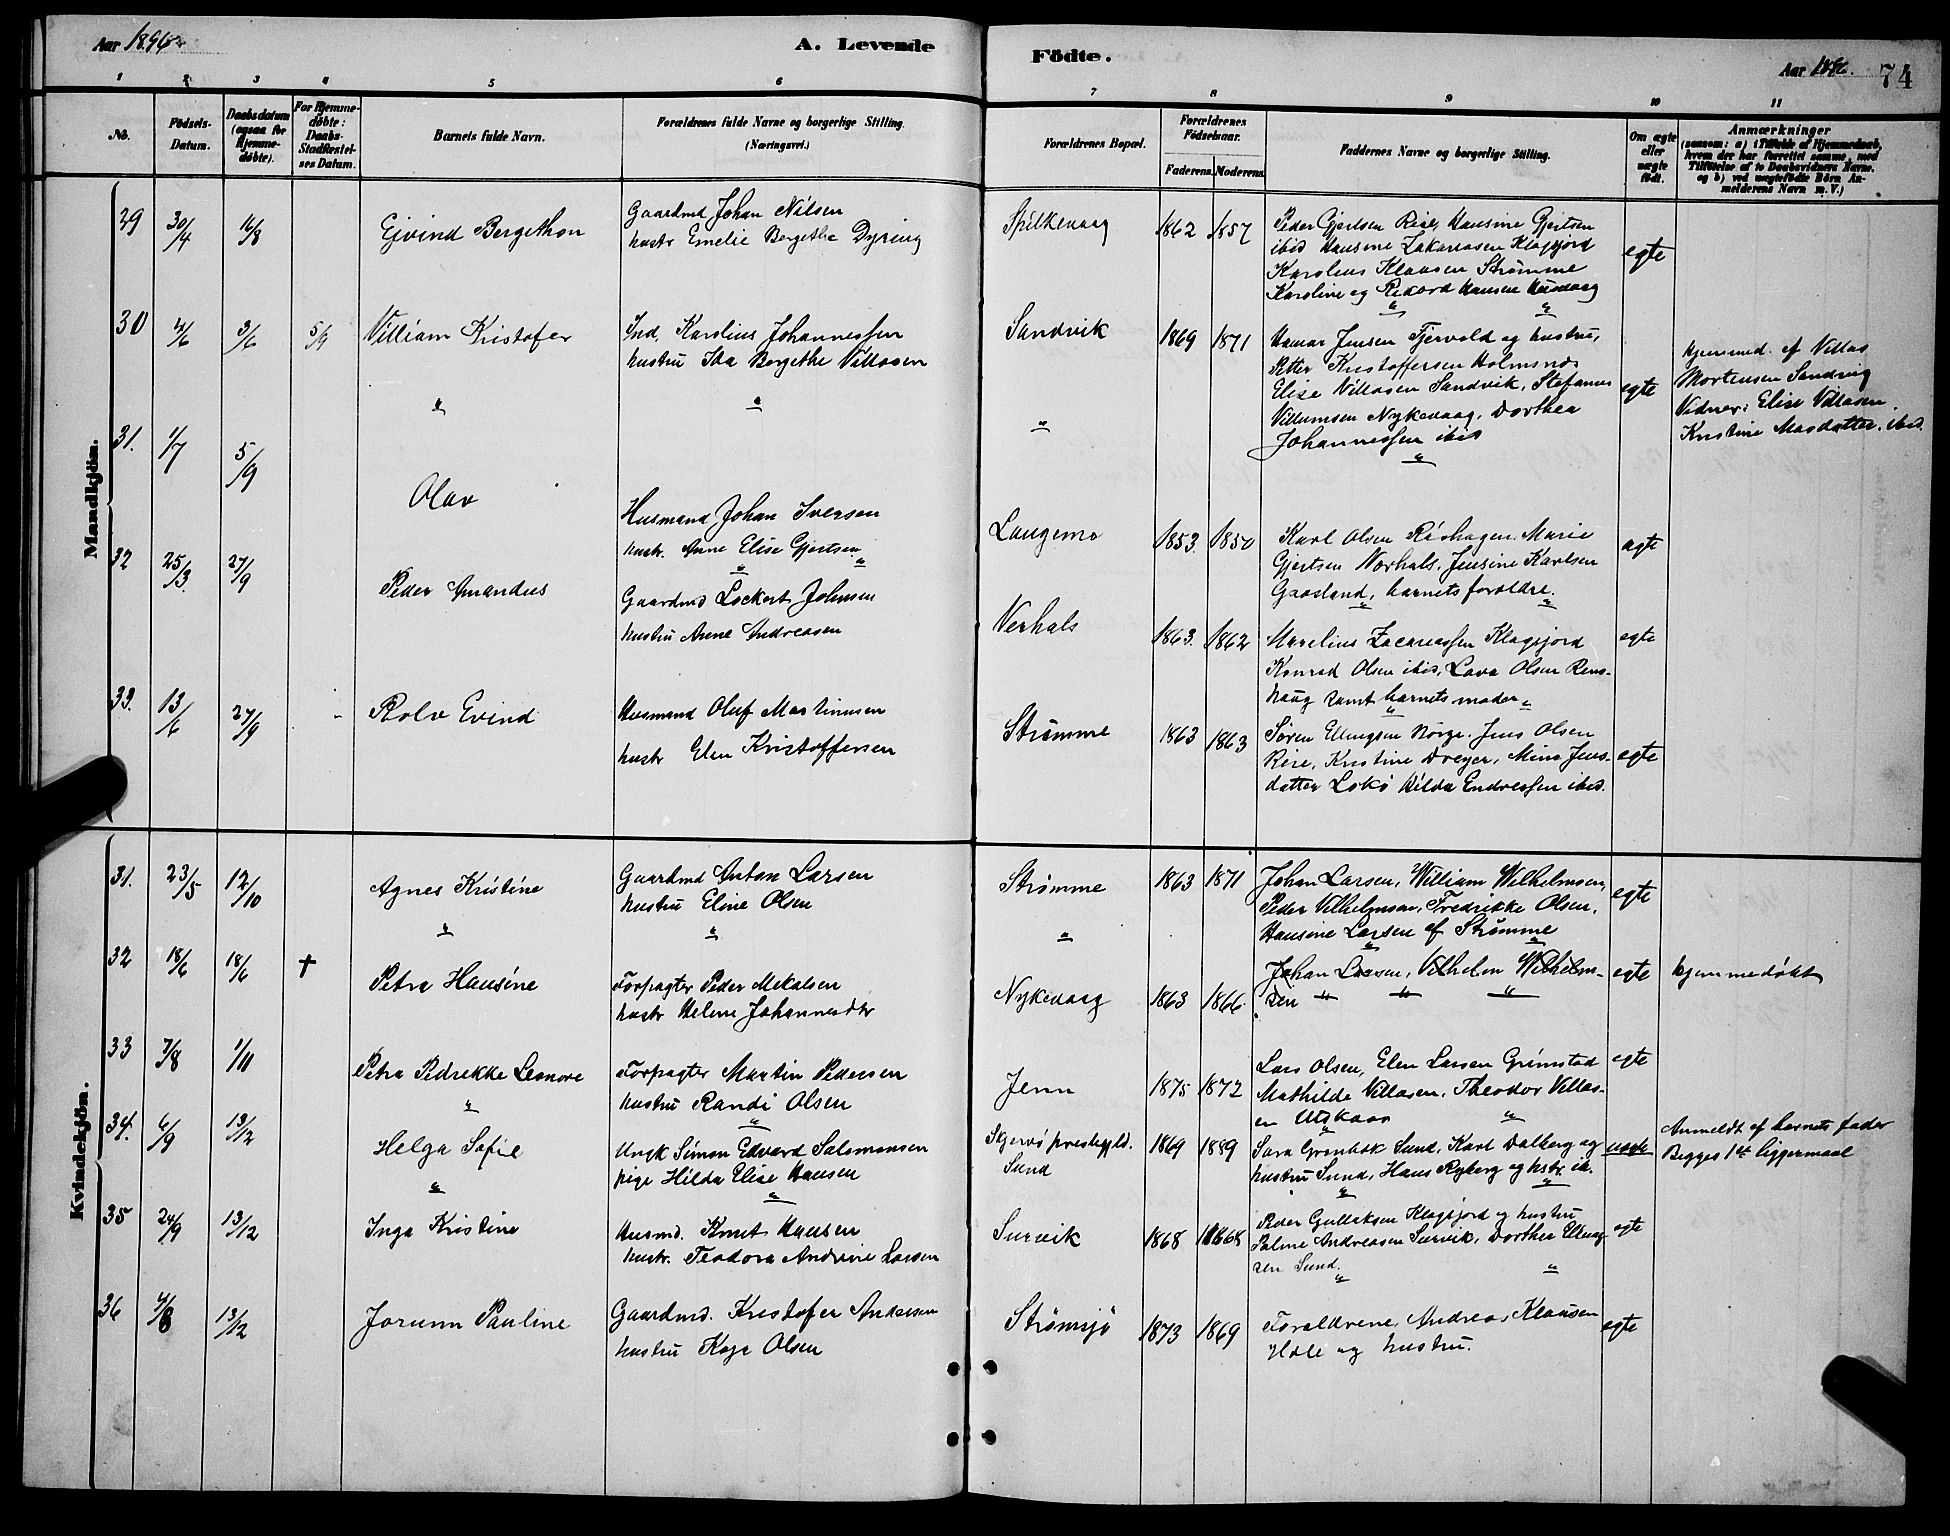 Aar 1896
A. Levende
Födte.
Aar 1896.
74
1 2 3 4 5 6 7 8 9 10 11
No.
Födsels-
Datum.
Daabsdatum
(ogsaa for
Hjemme-
døbte).
For Hjemme-
døbte:
Daabs-
Stadfæstel-
ses Datum.
Barnets fulde Navn.
Forældrenes fulde Navne og borgerlige Stilling.
(Næringsvei.)
Forældrenes Bopæl.
Forældrenes
Födselsaar.
Faderens. Moderens.
Faddernes Navne og borgerlige Stilling.
Om ægte
eller
uægte
født.
Anmærkninger
(saasom: a) i Tilfælde af Hjemmedaab,
hvem der har forrettet samme, med
Tilföielse af to Daabsvidners Navne.
og b) ved uægtefödte Börn An-
melderens Navn m. V.)
Mandkjön.
29 30/4 16/8 Ejvind Bergethon
Gaardmd Johan Nilsen
hustr Emelie Bergethe Dyring
Spilkevaag 1862 1857
Peder Gjertsen Rise, Hansine Gjertsen
ibid Hansine Zakariasen Klagsjord
Karolius Klausen Strømme
Karoline og Rikard Hansen
egte
30 4/6 3/6 5/9 Villiam Kristofer
Ind. Karolius Johannessen
hustru Ida Bergethe Villasen
Sandvik 1869 1871
Hamar Jensen Fjervold og hustru,
Petter Kristoffersen Holmsnes
Elise Villasen Sandvik, Stefanus
Villumsen Nykevaag, Dorthea
Johannessen ibid
egte
Hjemmed. af Villas
Mortensen Sandvig
Vidner: Elise Villasen
Kristine Masdatter. ibid.
31. 1/7 5/9 Olav
Husmand Johan Iversen
hustr. Anne Elise Gjertsen
Langemo 1853 1850
Karl Olsen Røshagen, Marie
Gjertsen Verhals, Jensine Karlsen
Gaasland, barnets foraldre.
egte
32 25/3 27/9 Peder Amandus
Gaardmd Lockert Johnsen
hustru Anne Andreasen
Verhals 1863 1862
Marelius Zacariassen Klagsjord
Konrad Olsen ibid, Lava Olsen Rens-
haug samt barnets moder
egte
33. 13/6 27/9 Rolv Evind
Husmand Oluf Martinusen
hustr Elen Kristoffersen
Strømme 1863 1863
Søren Ellingsen Norge. Jens Olsen
Rise, Kristine Dreyer, Mina Jens-
datter Lokø Hilda Endressen ibid.
egte
Kvindekjön.
31. 23/5 12/10 Agnes Kristine
Gaardmd Antan Larsen
hustru Eline Olsen
Strømme 1863 1871
Johan Larsen, William Wilhelmsen,
Peder Vilhelmsen, Fredrikke Olsen,
Hansine Larsen af Strømme
egte
32 18/6 18/6 † Petra Hansine
Forpagter Peder Mekalsen
hustr Helene Johannesdtr
Nykevaag 1863 1866
Johan Larsen, Vilhelm Wilhelm-
sen
egte
hjemmedøbt
33 7/8 1/11 Petra Pedrekke Leonore
Forpagter Martin Pedersen
hustru Randi Olsen
Jenn 1875 1872
Lars Olsen, Elen Larsen Grimstad
Mathilde Villasen, Theodor Villas-
en Utskaar
egte
34. 6/9 13/12 Helga Sofie
Ungk Simon Edvard Salomonsen
pige Hilda Elise Hansen
Skjervø prestegjeld.
Sund
1869 1889
Sara Grønbek Sund, Karl Dalberg og
hustru Sund, Hans Ryberg og hstr. ib.
uegte
Anmeldt af barnets fader
Begges 1ste liggermaal
35 24/9 13/12 Inga Kristine
Husmd. Knut Hansen
hustr. Teodora Andrine Larsen
Survik 1868 1868
Peder Gullaksen Klagsjord og hustru
Palme Andreasen Survik, Dorthea Elling-
sen Sund.
egte
36 4/8 13/12 Jorunn Pauline
Gaardmd. Kristofer Andersen
hustru Kaja Olsen
Strømsjø 1873 1869
Foraldrene, Andreas Klausen
Hole og hustru.
egte